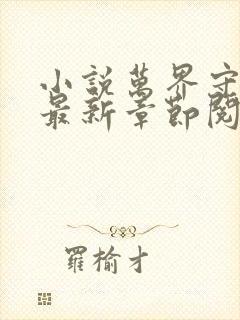 小說萬界守
最新章節閱
羅榆才